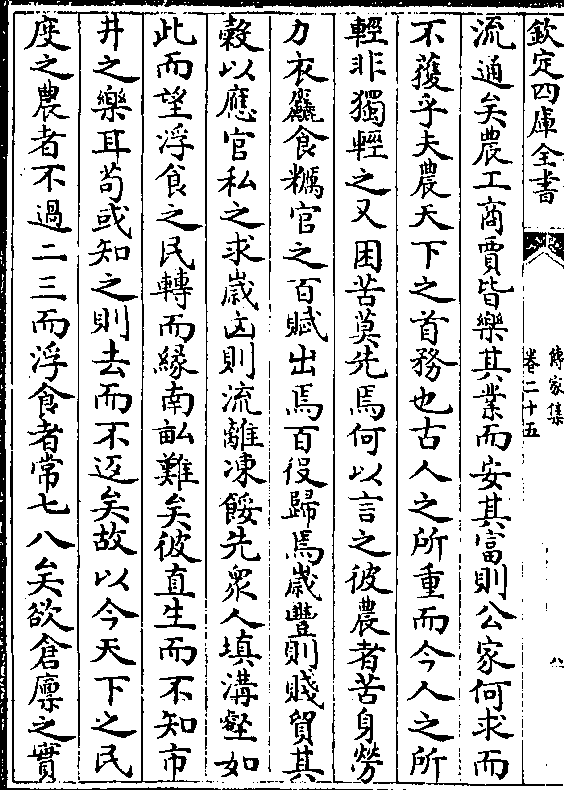 欽定四庫全書
傳家集
卷二十五
八
流通矣農工商賈皆樂其業而安其富則公家何求而
不獲乎夫農天下之首務也古人之所重而今人之所
輕非獨輕之又困苦莫先焉何以言之彼農者苦身勞
力衣麤食糲官之百賦出焉百役歸焉歲豐則賤貿其
穀以應官私之求歲凶則流離凍餒先衆人填溝壑如
此而望浮食之民轉而緣南畝難矣彼直生而不知市
井之樂耳苟或知之則去而不返矣故以今天下之民
度之農者不過二三而浮食者常七八矣欲倉廩之實